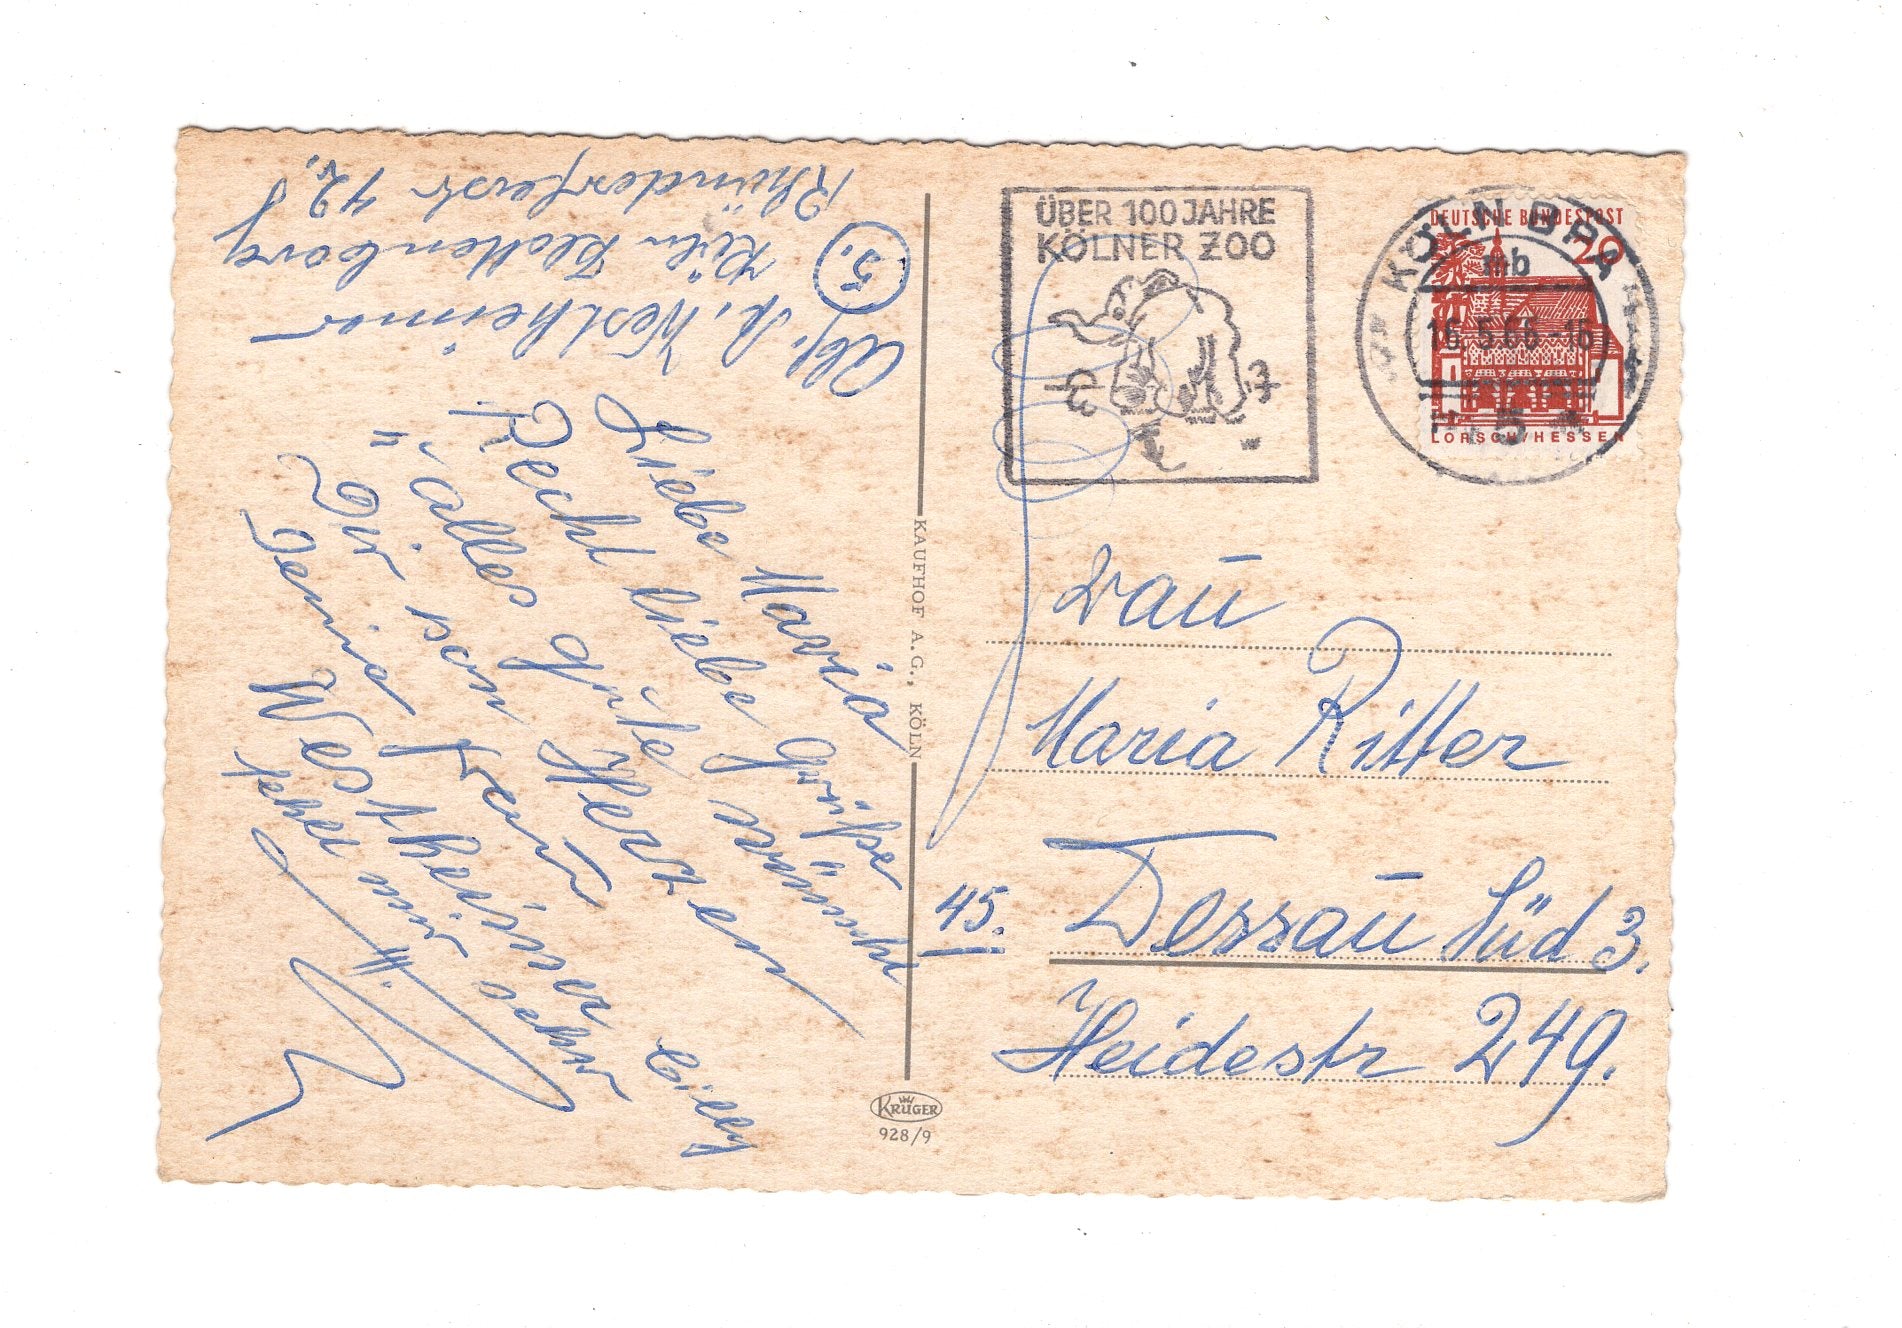 Abs. A. Westheimer
5. Köln Klettenberg
Rhöndorferstr 42,
Liebe Maria
Recht liebe Grüße
"alles Gute
Dir von Herzen
Deine
Westheimer
Cilly
ÜBER 100 JAHRE
KÖLNER ZOO
KÖLN
mb
16.5.66-16
5
DEUTSCHE BUNDESPOST
20
LORSCH/HESSEN
KAUFHOF A.G., KÖLN
Frau
Maria Ritter
45. Dessau Süd 3.
Heidestr 249.
KRÜGER
928/9